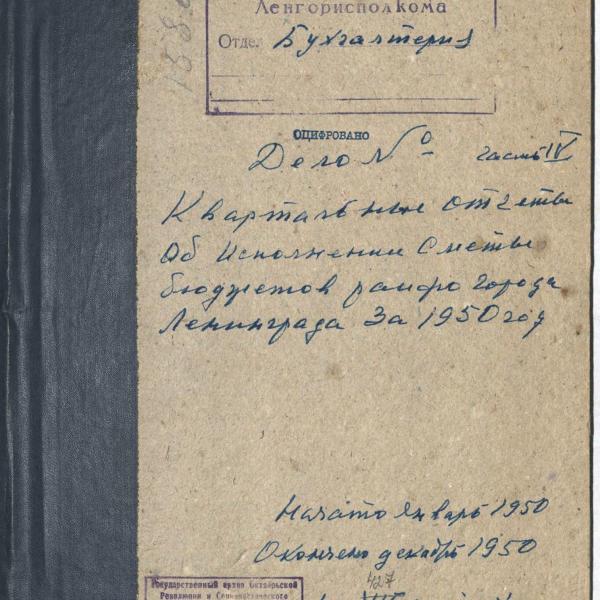 Ленгорисполкома
Отде. Бухгалтерия
ОЦИФРОВАНО
Дело № часть IV
Квартальные отчеты
Об Исполнении Сметы
бюджетов райфо города
Ленинграда За 1950 год
Начато Январь 1950
Окончено декабрь 1950
427
Государственный архив Октябрьской
Революции и Социалистического